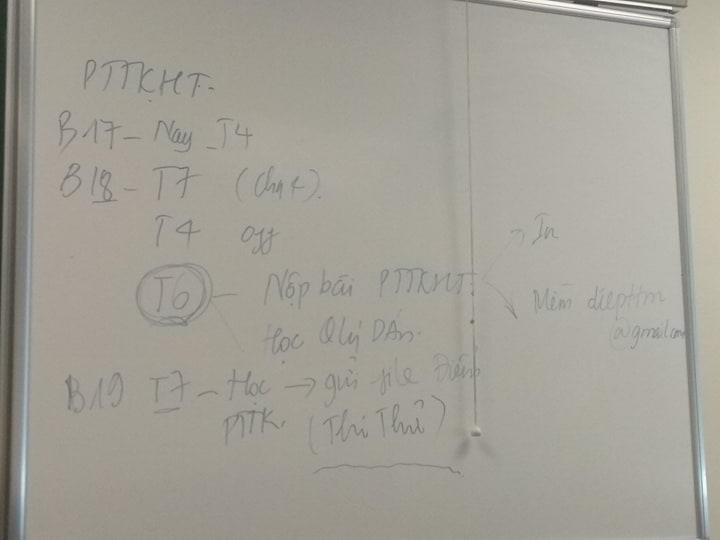 PTTKHT.
B17 - Nay - T4
B18 - T7
T4 off
T6 - Nộp bài PTTKHT.
In
Mềm diepttm
@gmail.com
Học Qlý DÁn.
B19 T7 - Học → gửi file Điểm
PTTK. (Thi Thử)